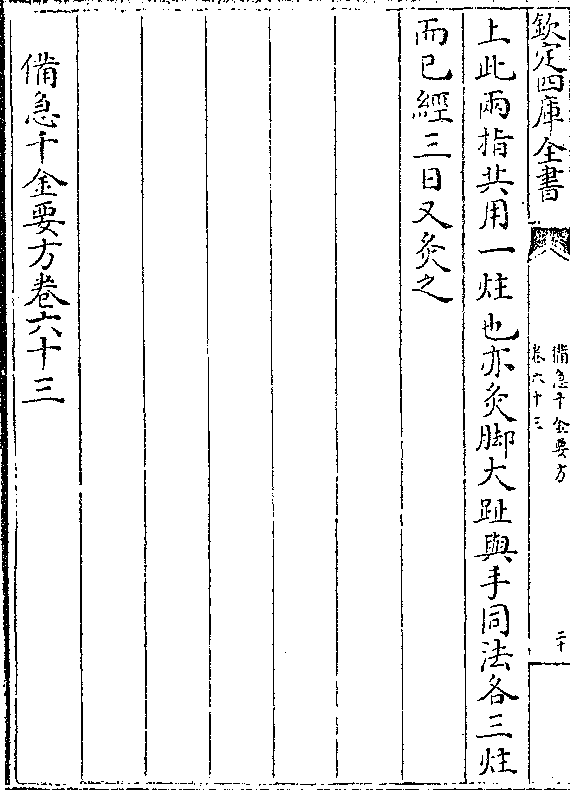 欽定四庫全書
備急千金要方
卷六十三
二十
上此兩指共用一炷也亦灸脚大趾與手同法各三炷
而已經三日又灸之
備急千金要方卷六十三